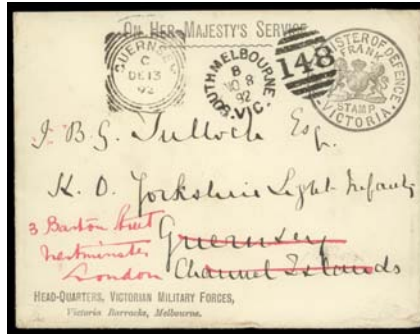 ON HER MAJESTY'S SERVICE
GUERNSEY
C
DE 13
92
SOUTH MELBOURNE
B
NO 8
92
VIC.
148
MINISTER OF DEFENCE
FRANK
STAMP
VICTORIA.
J. B. G. Tulloch Esq.
K. O. Yorkshire Light Infantry
3 Barton Street
Guernsey
Westminster
London Channel Islands
HEAD-QUARTERS, VICTORIAN MILITARY FORCES,
Victoria Barracks, Melbourne.